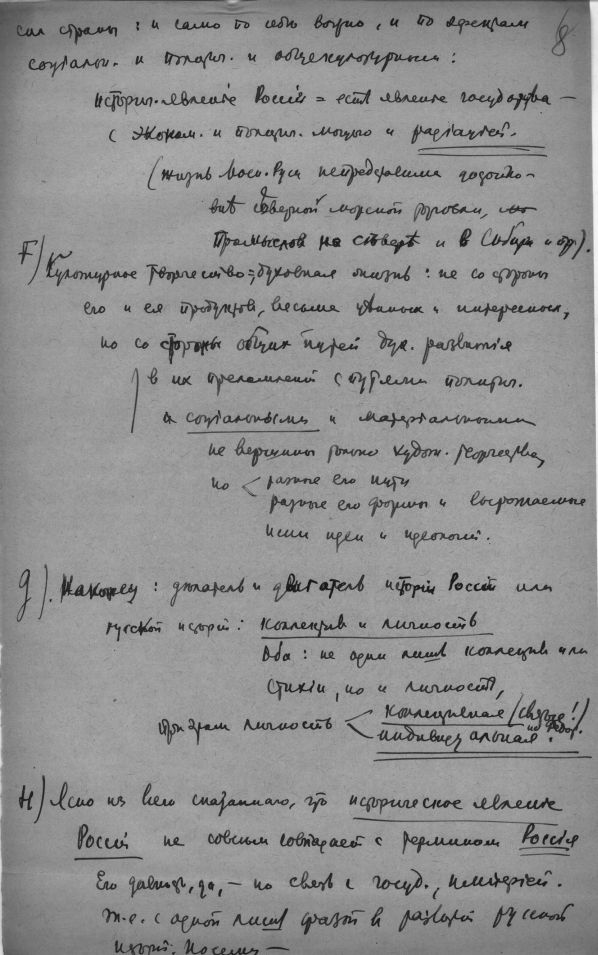 8
сил страны: и само по себе важно, и по
социальн. и политич. и общекультурным:
историч. явленіе Россіи = есть явленіе государства —
с эконом. и политич. мощью и радіаціей.
(жизнь Моск. Руси непредставима
северной морской торговли,
Промыслов на северѣ и в Сибири и др.).
F) Культурное творчество = духовная жизнь: не со стороны
его и ея продуктов, весьма цѣнных и интересных,
но со стороны общих путей дух. развитія
в их преломленіи с путями политич.
и соціальными и матеріальными
не вершины только худож. творчества,
но < разные его пути
разные его формы и выражаемые
ими идеи и идеологіи.
g). Наконец: дѣлатель и двигатель исторіи Россіи или
русской исторіи: коллектив и личность
Оба: не один лишь коллектив или
стихіи, но и личность,
при этом личность < коллективная (
индивидуальная.
H) Ясно из всего сказаннаго, что историческое явленіе
Россіи не совсем совпадает с термином Россія
Его да, — но связь с госуд., имперіей.
т.е. с одной лишь фазой в развитіи русской
исторіи. Посему —